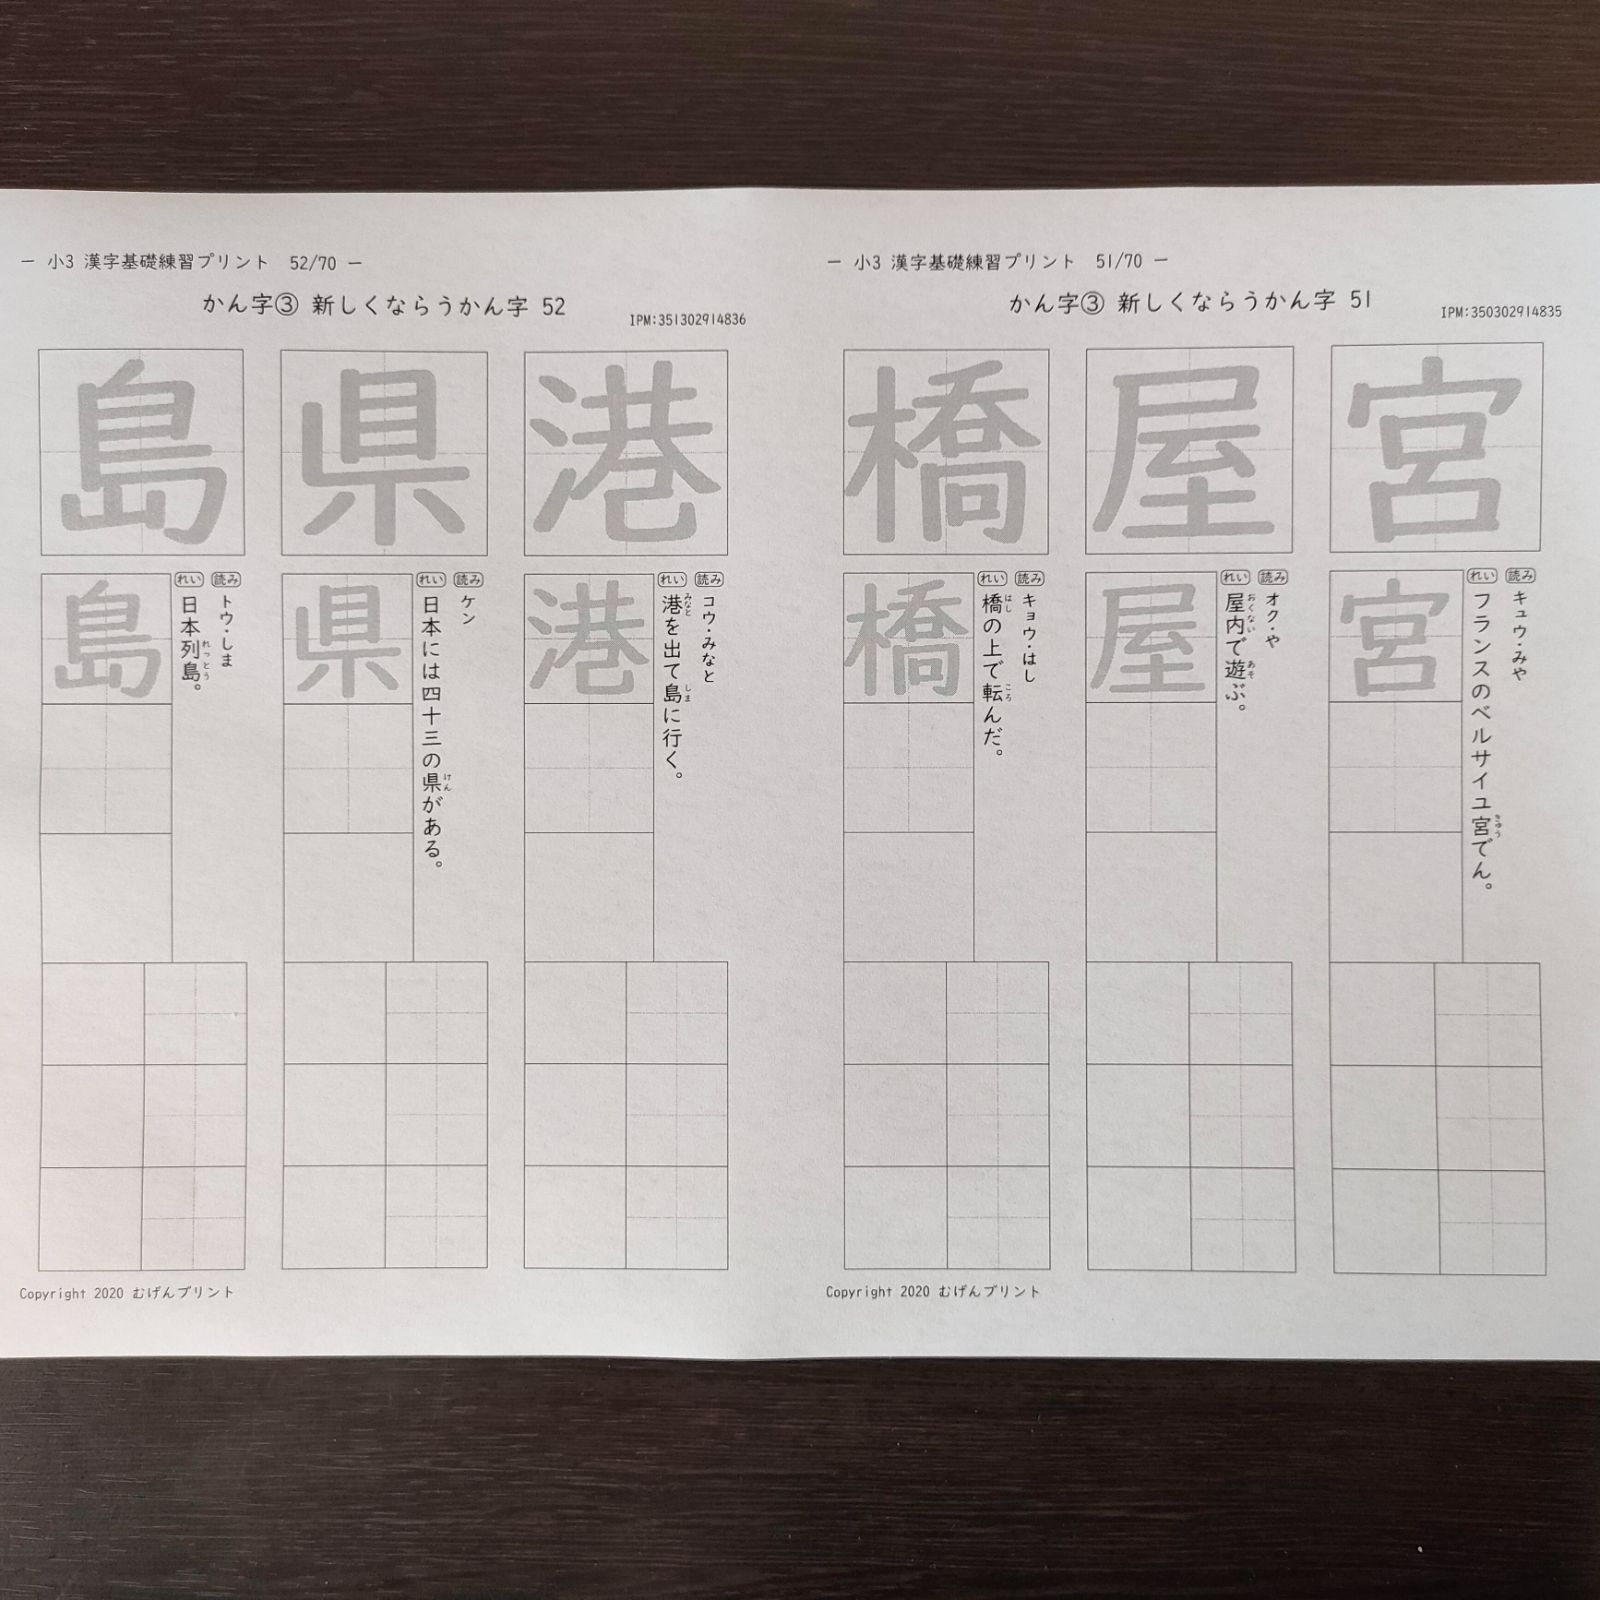 — 小3 漢字基礎練習プリント 51/70 —
かん字③ 新しくならうかん字 51
IPM:350302914835
宮
宮
読み キュウ・みや
れい フランスのベルサイユ宮でん。
きゅう
屋
屋
読み オク・や
れい 屋内で遊ぶ。
おくない あそ
橋
橋
読み キョウ・はし
れい 橋の上で転んだ。
はし ころ
Copyright 2020 むげんプリント
— 小3 漢字基礎練習プリント 52/70 —
かん字③ 新しくならうかん字 52
IPM:351302914836
港
港
読み コウ・みなと
れい 港を出て島に行く。
みなと しま
県
県
読み ケン
れい 日本には四十三の県がある。
けん
島
島
読み トウ・しま
れい 日本列島。
れっとう
Copyright 2020 むげんプリント